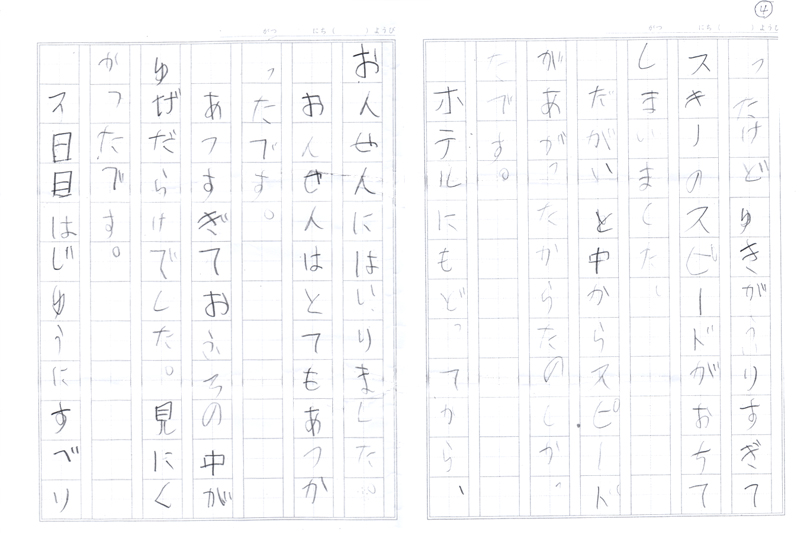 ④
がつ にち ( ようび
ったけどゆきがふりすぎて
スキーのスピードがおちて
しまいました。
だがいと中からスピード
があがったからたのしかっ
たです。
ホテルにもどってから、
がつ にち ( ようび
おんせんにはいりました。
おんせんはとてもあつか
ったです。
あつすぎておふろの中が
ゆげだらけでした。見にく
かったです。
ス目目はじゆうにすべり